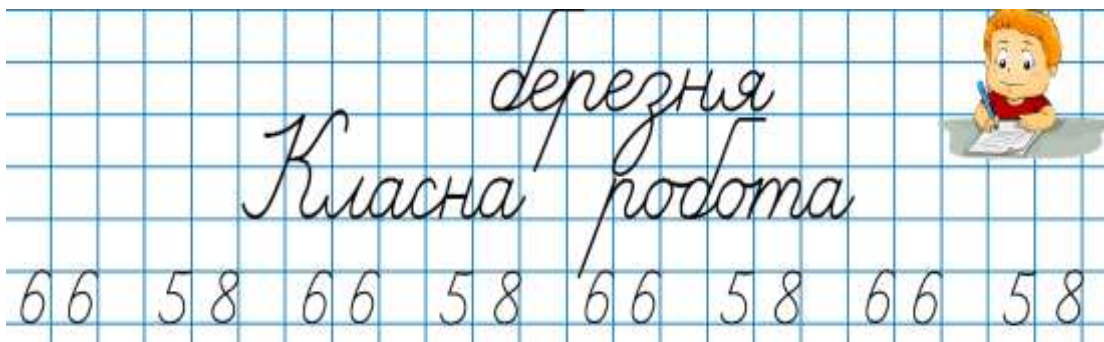 березня
Класна робота
66 58 66 58 66 58 66 58